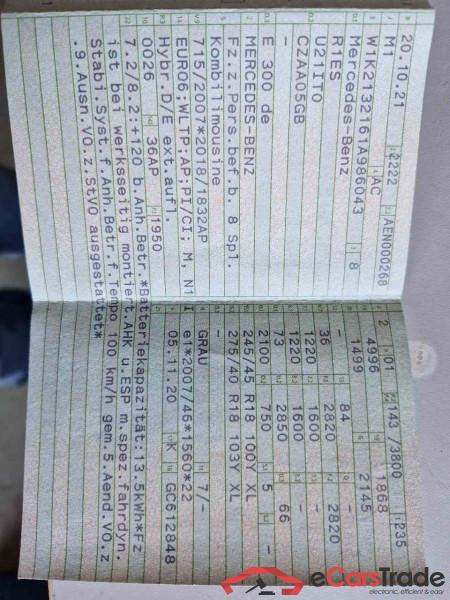 20.10.21 2222 AEN000268
M1 AC
W1K2132161A986043 8
Mercedes-Benz
R1ES
U21IT0
CZAA05GB
-
E 300 de
MERCEDES-BENZ
Fz.z.Pers.bef.b. 8 Spl.
Kombilimousine
715/2007*2018/1832AP
EURO6;WLTP;AP;PI/CI; M, N1 I
Hybr.D/E ext.aufl.
0026 36AP 1950
7.2/8.2:+120 b.Anh.Betr.*Batteriekapazität:13.5kWh*Fz
ist bei werksseitig montiert.AHK u.ESP m.spez.fahrdyn.
Stabi.Syst.f.Anh.Betr.f.Tempo 100 km/h gem.5.Aend.VO.z
.9.Ausn.VO.z.StVO ausgestattet*
2 01 143 /3800 235
4996 1868
1499 2145
- 84 -
36 2820 2820
1220 1600 -
1220 1600 -
73 2850 66
2100 750 5 -
245/45 R18 100Y XL
275/40 R18 103Y XL
-
GRAU 7/-
e1*2007/46*1560*32
05.11.20 K GC612848
eCarsTrade
electronic, efficient & easy